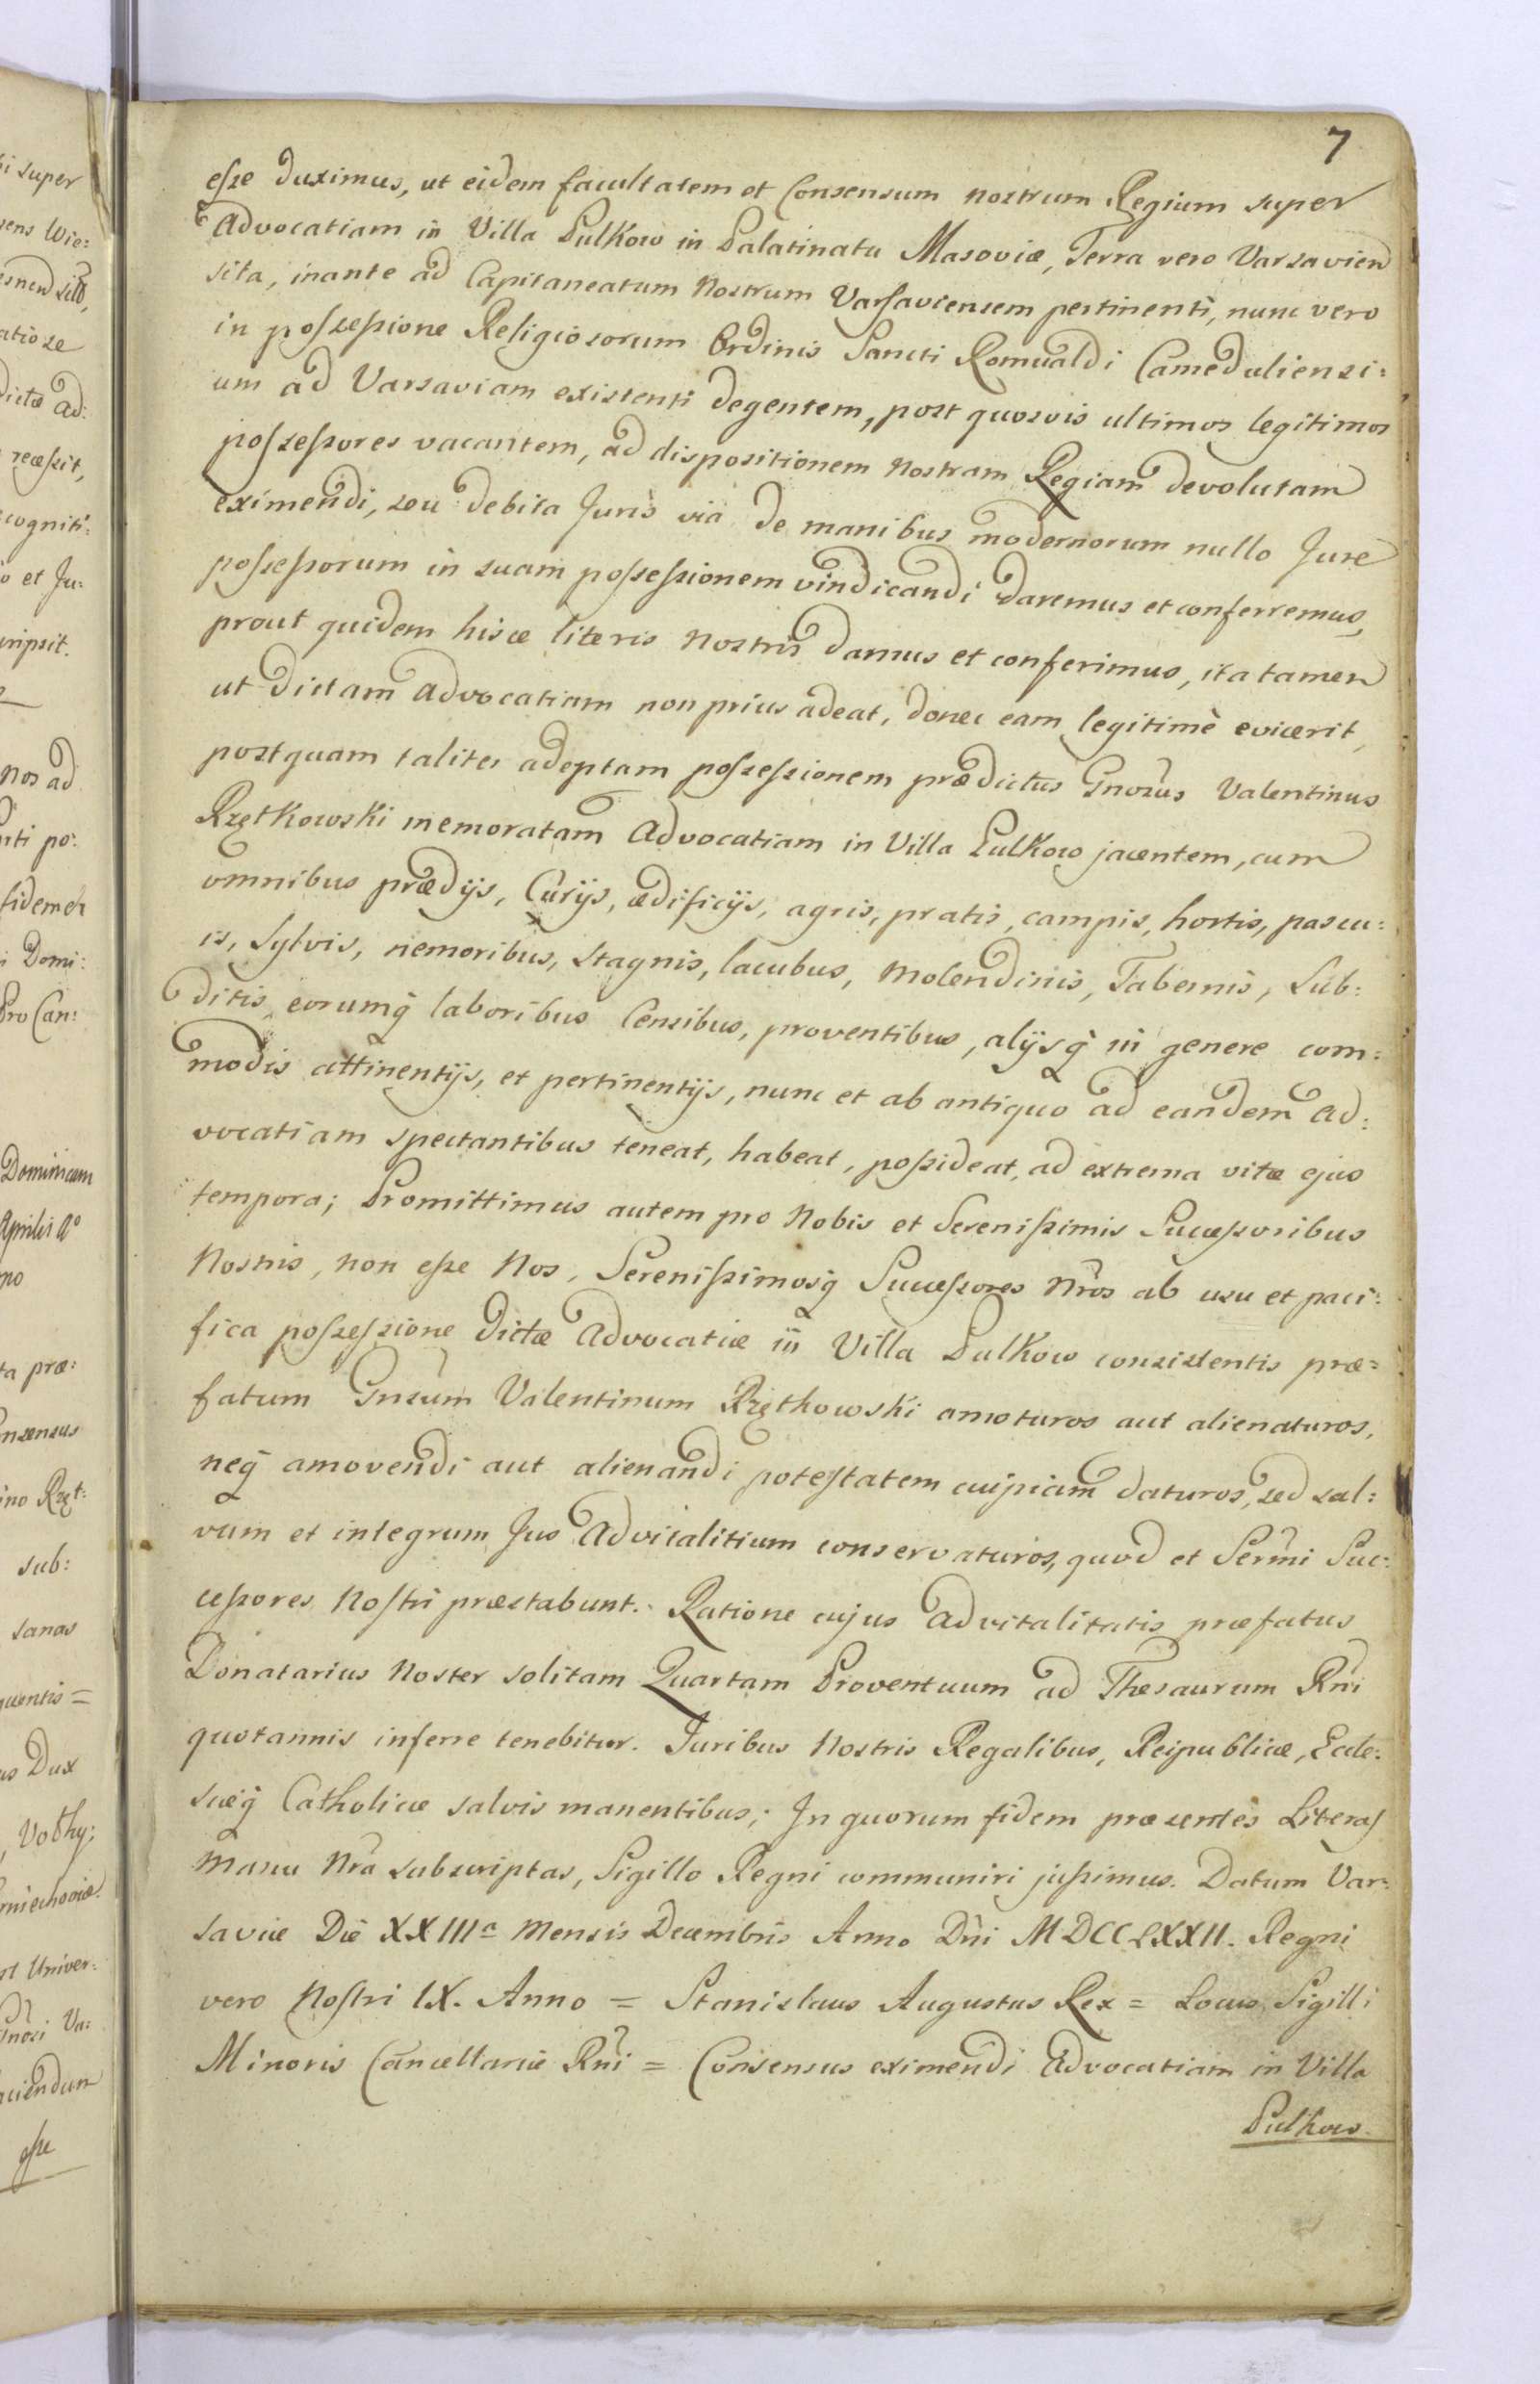 7
esse duximus, ut eidem facultatem et Consensum nostrum Regium super
Advocatiam in Villa Pulkow in Palatinatu Masoviæ, Terra vero Varsavien
sita, inante ad Capitaneatum Nostrum Varsaviensem pertinenti, nunc vero
in possessione Religiosorum Ordinis Sancti Romualdi Cameduliensi:
um ad Varsaviam existenti degentem, post quosvis ultimos legitimos
possessores vacantem, ad dispositionem nostram Regiam devolutam
eximendi, seu debita Juris via de manibus modernorum nullo Jure
possessorum in suam possessionem vindicandi daremus et conferremus,
prout quidem hisce literis Nostris damus et conferimus, ita tamen
ut dictam advocatiam non prius adeat, donec eam legitimè evicerit,
postquam taliter adeptam possessionem prædictus Gnosus Valentinus
Rzętkowski memoratam Advocatiam in Villa Pulkow jacentem, cum
omnibus prædijs, Curijs, ædificijs, agris, pratis, campis, hortis, pascu:
is, Sylvis, nemoribus, stagnis, lacubus, Molendinis, Tabernis, Sub:
ditis, eorumq laboribus Censibus, proventibus, alijsq in genere com:
modis attinentijs, et pertinentijs, nunc et ab antiquo ad eandem Ad:
vocatiam spectantibus teneat, habeat, possideat, ad extrema vitæ ejus
tempora; Promittimus autem pro Nobis et Serenissimis Successoribus
Nostris, non esse Nos, Serenissimosq Successores Nros ab usu et paci:
fica possessione dictæ Advocatiæ in Villa Pulkow consistentis præ=
fatum Gnsum Valentinum Rzętkowski amoturos aut alienaturos,
neq amovendi aut alienandi potestatem cuipiam daturos, sed sal:
vum et integrum Jus Advitalitium conservaturos, quod et Sermi Suc:
cessores Nostri præstabunt. Ratione cujus advitalitatis præfatus
Donatarius Noster solitam Quartam Proventuum ad Thesaurum Rni
quotannis inferre tenebitur. Juribus Nostris Regalibus, Reipublicæ, Eccle:
siæq Catholicæ salvis manentibus; In quorum fidem præsentes Literas
manu Nra subscriptas, Sigillo Regni communiri jussimus. Datum Var:
saviæ Die XXIIIa Mensis Decembris Anno Dni MDCCLXXII. Regni
vero Nostri IX. Anno = Stanislaus Augustus Rex = Locus Sigilli
Minoris Cancellariæ Rni = Consensus eximendi Advocatiam in Villa
Pulkow.
i super
Wie:
dictæ Ad:
recessit,
et Ju:
Nos ad
po:
fidem
Domi:
Pro Can:
Dominicum
Aprilis Ao
præ:
Rzęt:
sub:
sanas
Dux
Univer:
Va:
esse